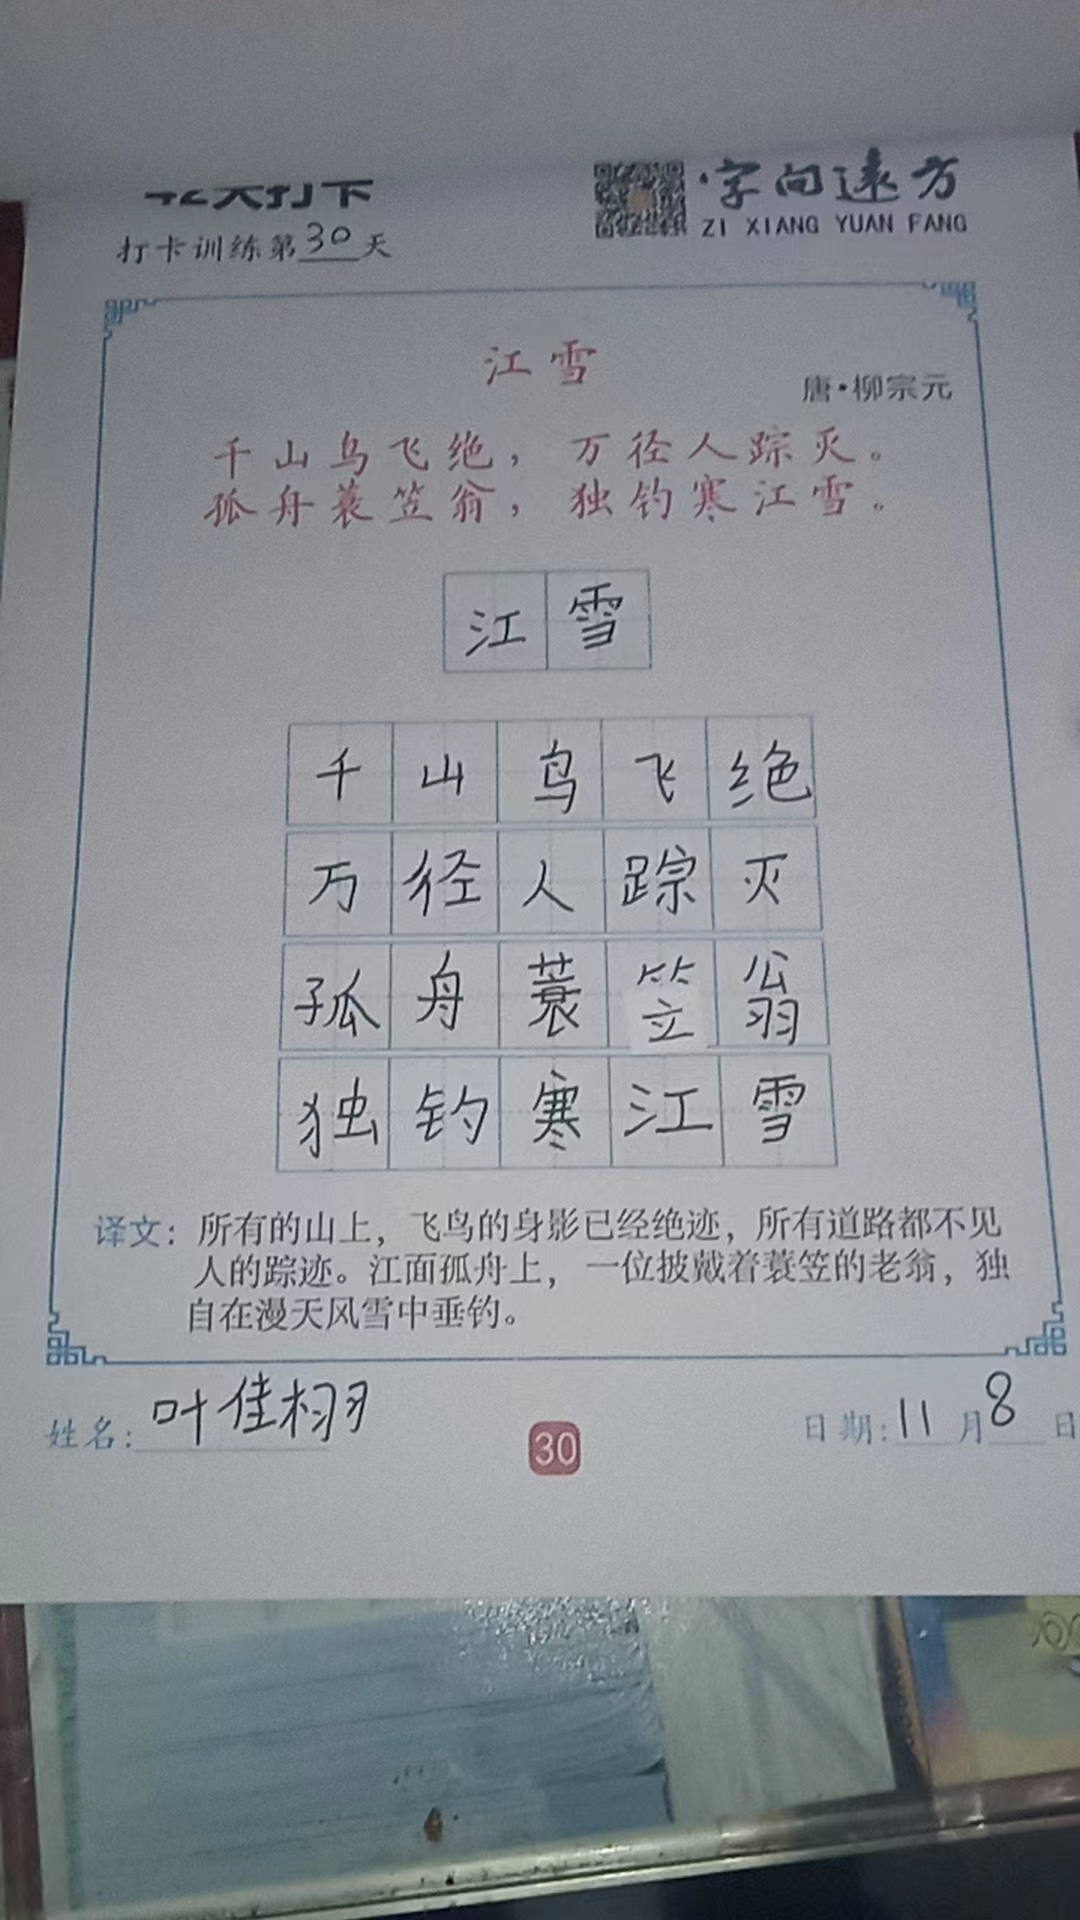 字向远方
ZI XIANG YUAN FANG
打卡训练第30天
江雪
唐·柳宗元
千山鸟飞绝，万径人踪灭。
孤舟蓑笠翁，独钓寒江雪。
江雪
千山鸟飞绝
万径人踪灭
孤舟蓑笠翁
独钓寒江雪
译文：所有的山上，飞鸟的身影已经绝迹，所有道路都不见
人的踪迹。江面孤舟上，一位披戴着蓑笠的老翁，独
自在漫天风雪中垂钓。
姓名：叶佳栩
30
日期：11月8日